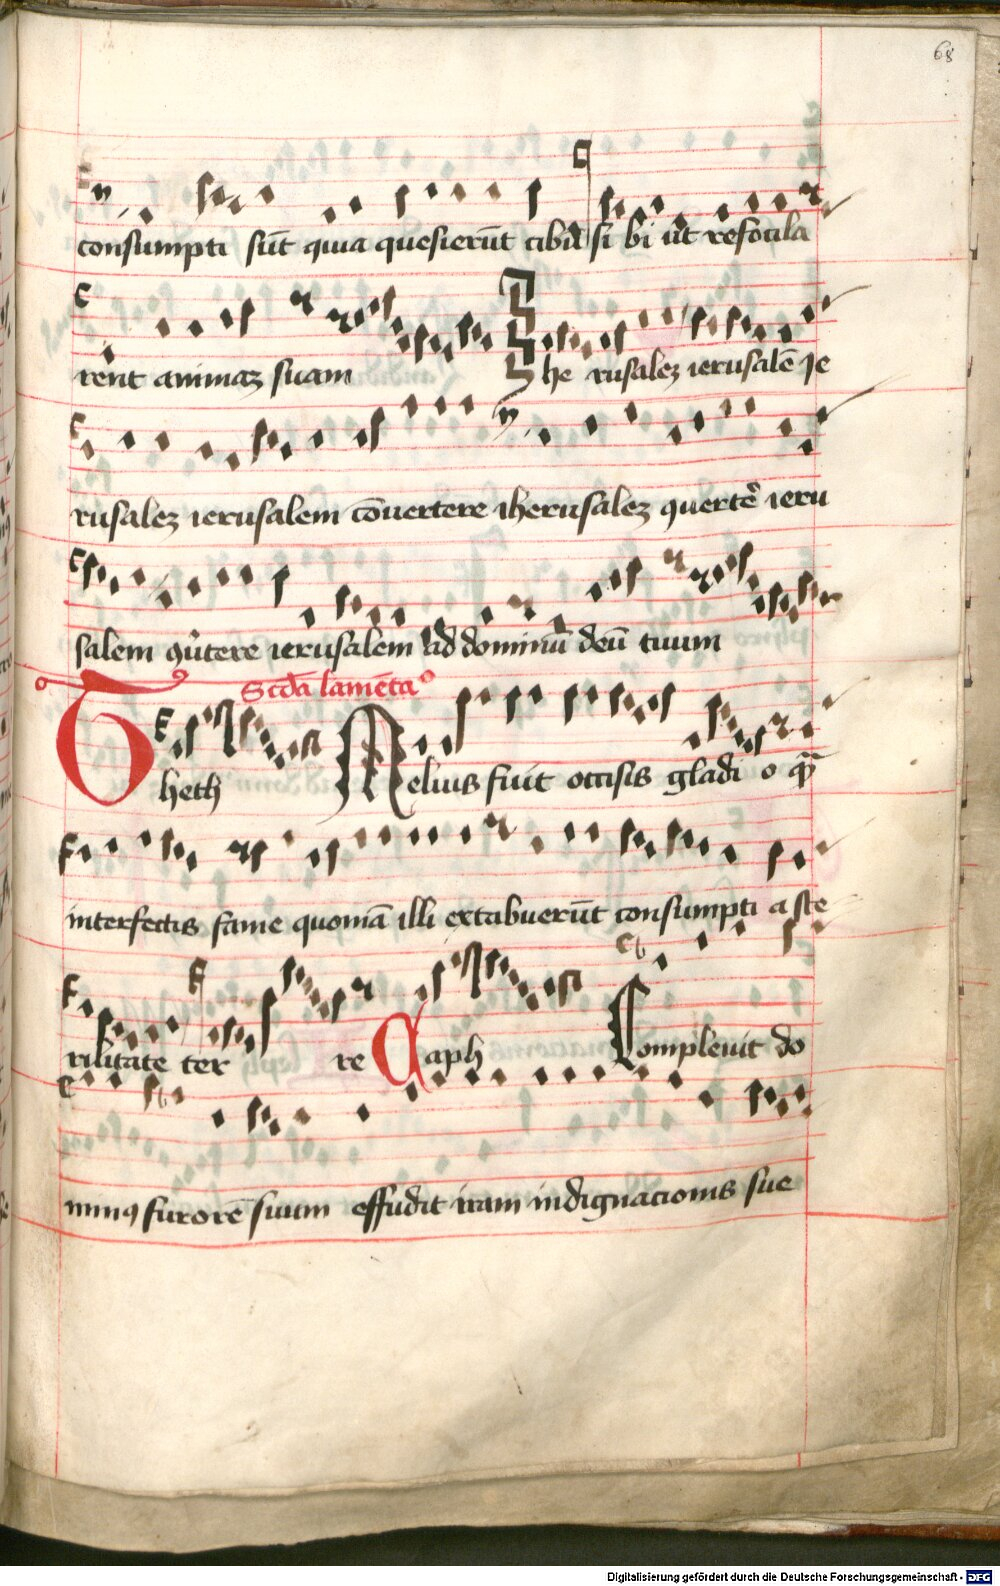 68
consumpti sūt quia quesierūt cibū si bi ut refocila
rent animaz suam Ihe rusalez ierusalē Ie
rusalez ierusalem cōuertere iherusalez ꝯuertē ieru
salem ꝯůtere ierusalem ad dominū deū tuum
Scd̄a lamēta°
Theth Melius fuit occisis gladi o qͣ̄
interfectis fame quoniā illi extabuerūt consumpti a ste
rilitate ter re Caph Compleuit do
minꝯ furorē suum effudit iram indignacionis sue
Digitalisierung gefördert durch die Deutsche Forschungsgemeinschaft - DFG